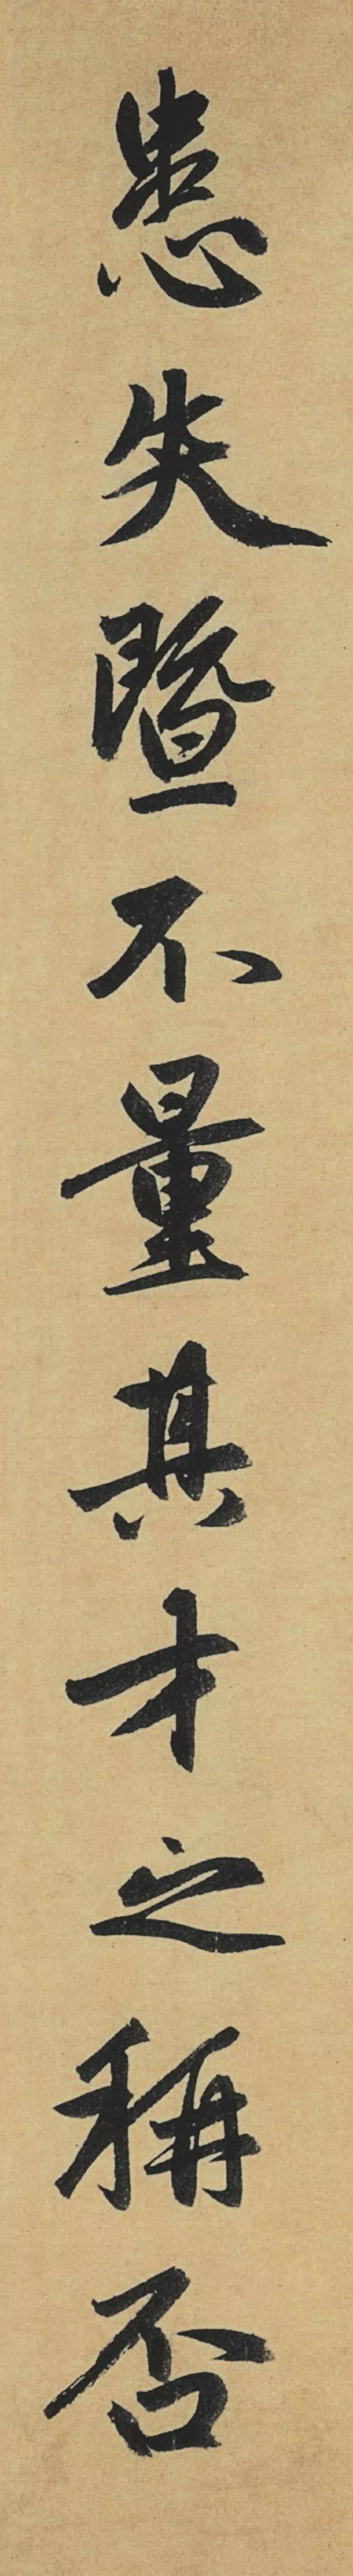 患失暨不量其才之稱否